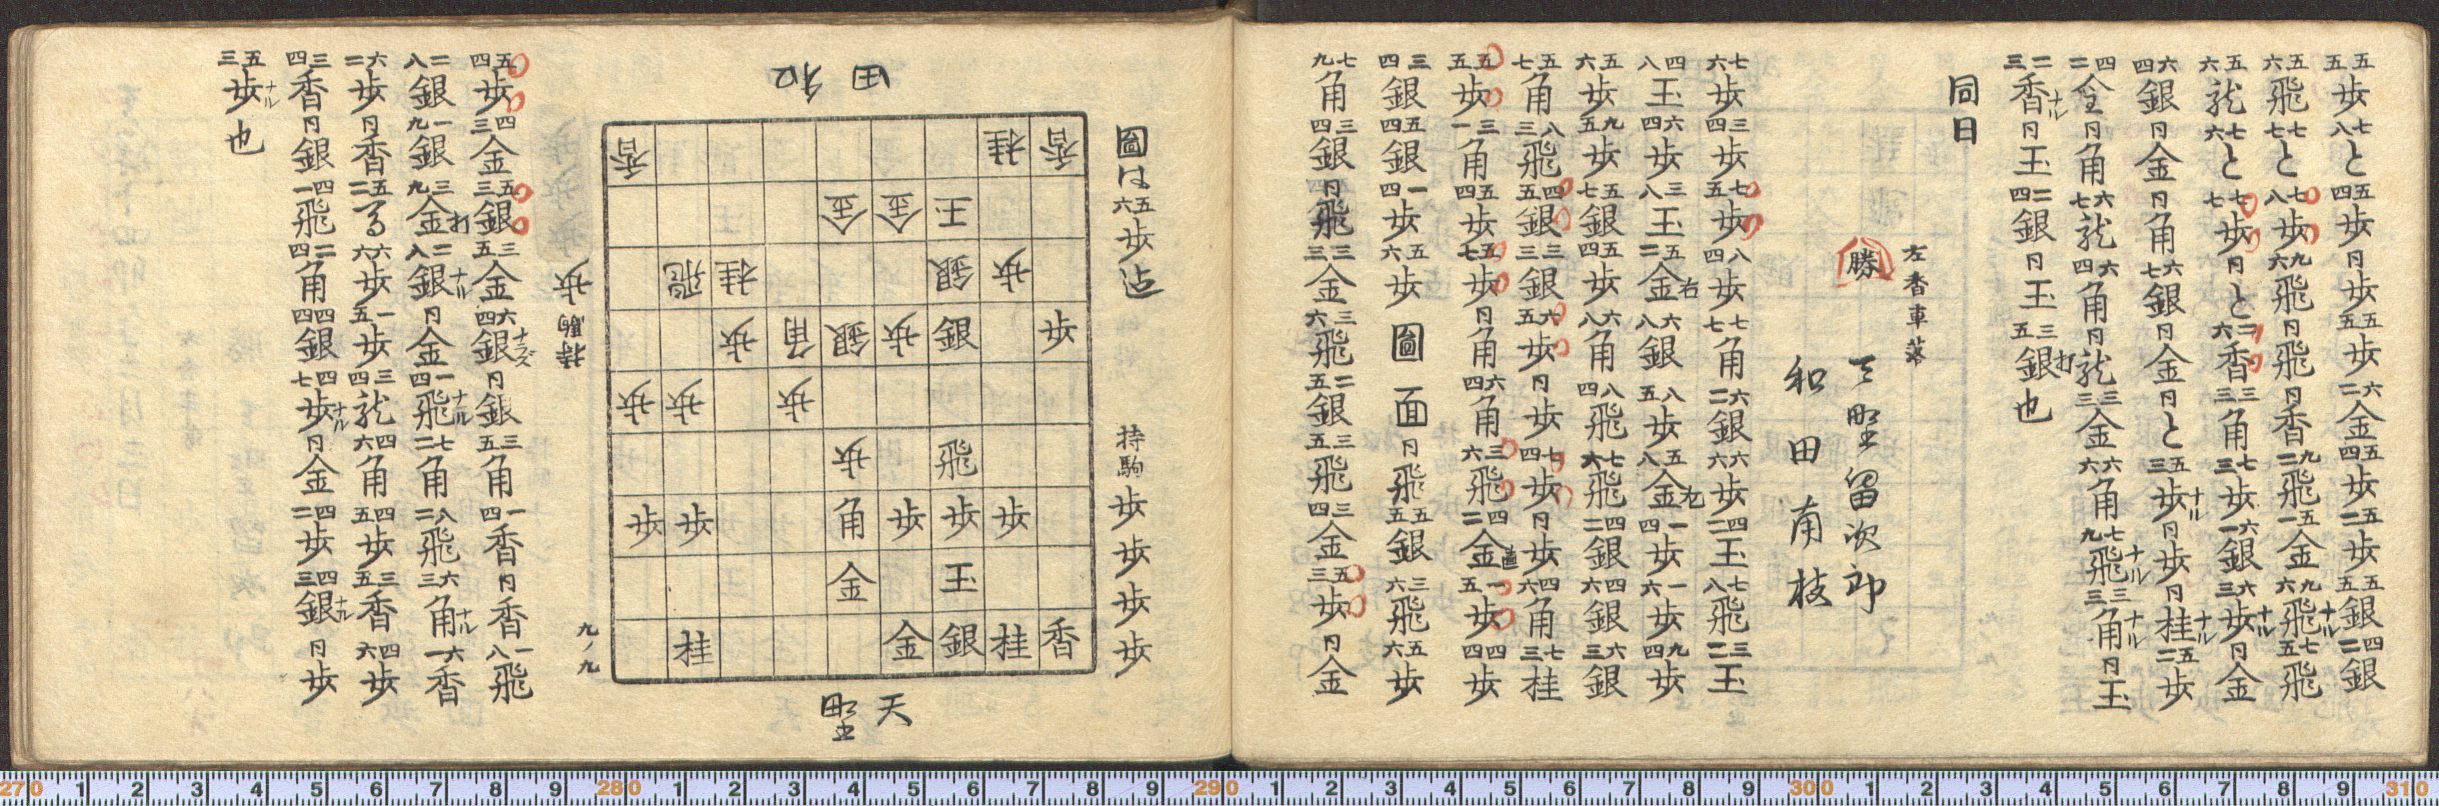 五五歩七八と五四歩同歩五五歩六二金五四歩五二歩五五銀四二銀
五六飛七七と七八歩九六飛同飛同香九二飛五一金九六飛ナル七五飛
五六龍七六と七七歩同と二六香三三角七三歩六一銀六三歩ナル同金
六四銀同金同角六七銀同金同と五三歩ナル同歩同桂ナル五二歩
四二金同角六七龍六四角同龍三三金六六角七九飛ナル三三角ナル同玉
二三香ナル同玉二四銀同玉三五銀打也
同日
左香車落
勝 天野留次郎
和田甫枝
七六歩三四歩七五歩八四歩七七角六二銀六六歩四二玉七八飛三二玉
四八玉六四歩三八玉五二金右六八銀八五歩五八金左一四歩一六歩九四歩
五六歩九五歩五七銀五四歩六八角八四飛七六飛四二銀四六銀六三銀
五七角八三飛四五銀三三銀六五歩同歩七四歩同歩四六角七三桂
五五歩三一角五四歩五七歩同角六四角三六飛四二金直一五歩四四歩
三四銀五四銀一四歩五六歩圖面同飛五五銀三六飛五六歩
七九角三四銀同飛三三金三六飛二五銀三五飛三四金五三歩同金
圖は五六歩迄 持駒歩歩歩歩
和田
香桂香
金金玉
飛桂銀歩
歩角銀歩銀歩
歩歩歩
歩飛
歩歩角歩歩歩
金玉
桂金銀桂香
天野
持駒歩
九ノ九
五四歩四三金五三銀三五金六四銀ナラズ同銀三五角一四香同香一八飛
二八銀一九銀三九金打二八銀ナル同金一四飛ナル七二角八二飛六三角ナル六一香
六二歩同香五二馬六六歩一五歩三四龍四六角四五歩三五香四六歩
三四香同銀四一飛二四角四四銀四七歩ナル同金四二歩四三銀ナル同歩
五三歩ナル也